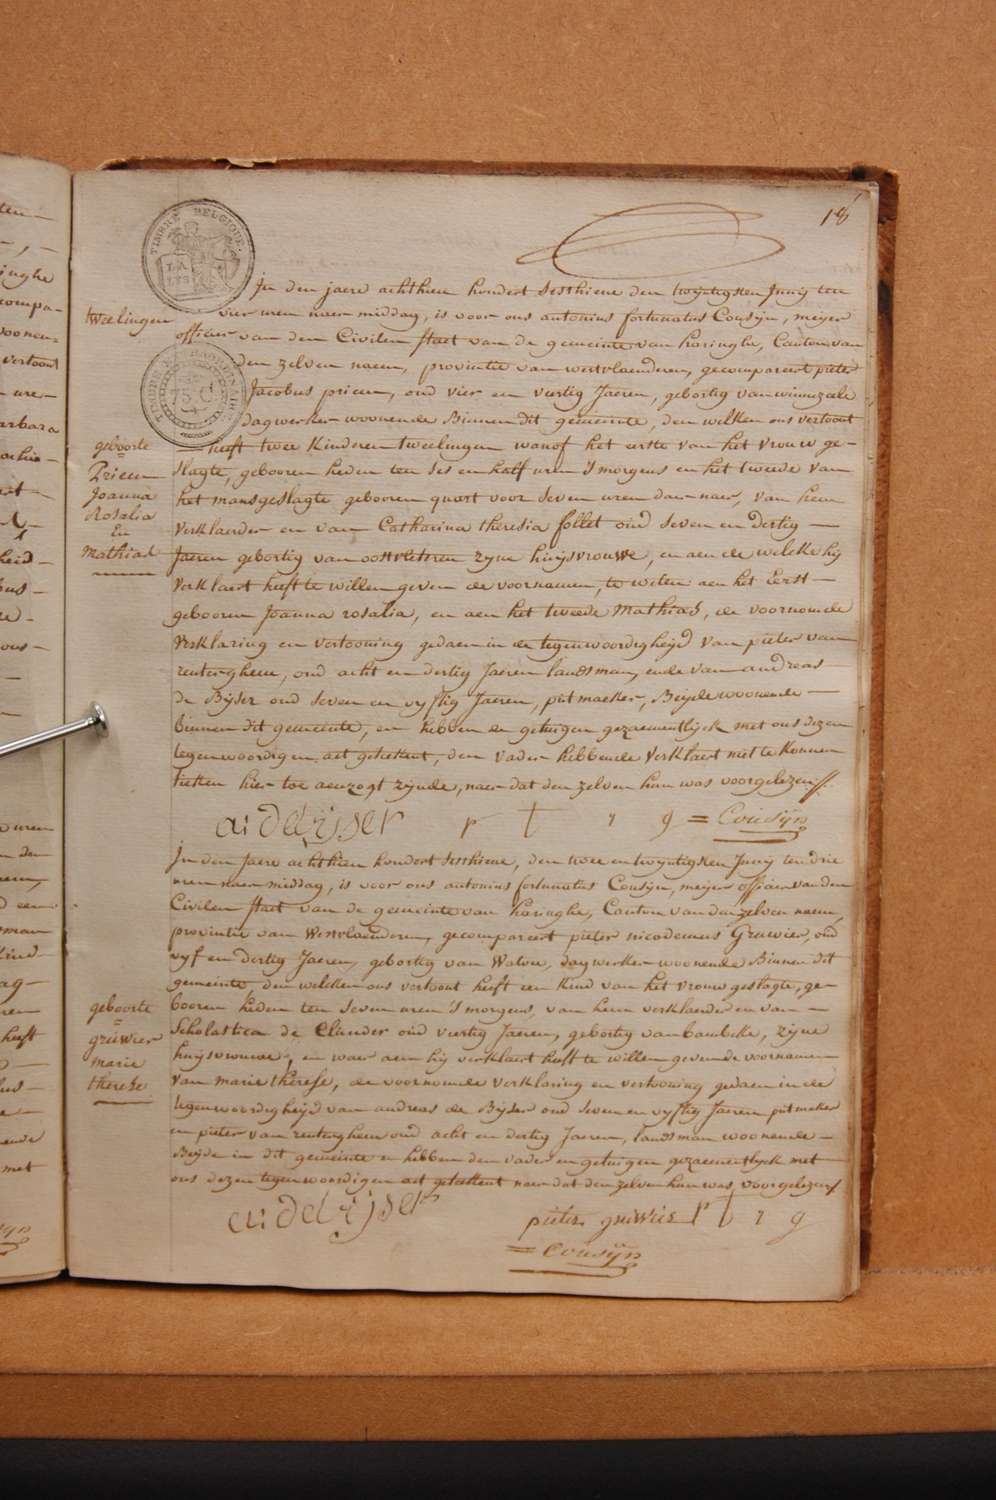 18
TIMBRE BELGIQUE.
In den jaere achthien hondert sesthiene den twyntigsten Junij ten
tweelingen
vier uren naer middag, is voor ons antonius fortunatus Cousijn, meijer
officier van den Civilen staet van de gemeinte van haringhe, Canton van
den zelven naem, provintie van westvlaenderen, gecompareert pieter
Jacobus prieem, oud vier en vertig Jaeren, gebortig van winnezeele
dagwerker woonende Binnen dit gemeinte, den welken ons vertoont
heeft twee Kinderen tweelingen wanof het eerste van het vrouw ge-
slagte, gebooren heden ten ses en half uren 's morgens en het tweede van
het mansgeslagte gebooren quart voor seven uren daer naer, van hem
verklaerder en van Catharina theresia follet oud seven en dertig
Jaeren gebortig van oostvleteren zyne huysvrouwe, en aen de welcke hy
verklaert heeft te willen geven de voornamen, te weten aen het Eerst
gebooren Joanna rosalia, en aen het tweede Mathias, de voornoemde
verklaring en vertooning gedaen in de tegenwoordigheijd van pieter van
renterghem, oud acht en dertig Jaeren landsman, ende van andreas
de Bijser oud seven en vyftig Jaeren, putmaeker, Beijde woonende
binnen dit gemeente, en hebben de getuigen gezaementlyck met ons dezen
tegenwoordigen act geteekent, den vader hebbende verklaert niet te konnen
tieken hier toe aenzogt zijnde, naer dat den zelven hun was voorgelezen
geboorte
=
Prieem
Joanna
Rosalia
En
Mathias
a: de bijser p † r g = Cousijn
In den Jaere achthien hondert sesthiene, den twee en twyntigsten Junij ten drie
uren naer middag, is voor ons antonius fortunatus Cousijn, meijer officier van den
Civilen staet van de gemeinte van haringhe, Canton van den zelven naem,
provintie van Westvlaenderen, gecompareert pieter nicodemus Gruwier, oud
vyf en dertig Jaeren, gebortig van Watou, dagwerker woonende Binnen dit
gemeinte, den welken ons vertoont heeft een Kind van het vrouw geslagte, ge-
booren heden ten seven uren 's morgens, van hem verklaerder en van
Scholastica de Clunder oud viertig Jaeren, gebortig van bambeke, zijne
huijsvrouwe, en waer aen hij verklaert heeft te willen geven de voornamen
van marie therese, de voornoemde verklaring en vertooning gedaen in de
tegenwoordigheijd van andreas de Bijser oud seven en vyftig Jaeren putmaker
en pieter van renterghem oud acht en dertig Jaeren, landsman woonende
Beijde in dit gemeinte en hebben den vader en getuigen gezaementlyck met
ons dezen tegenwoordigen act geteekent naer dat den zelven hun was voorgelezen
geboorte
=
gruwier
marie
therese
a: de bijser
pieter gruwier p † r g
= Cousijn